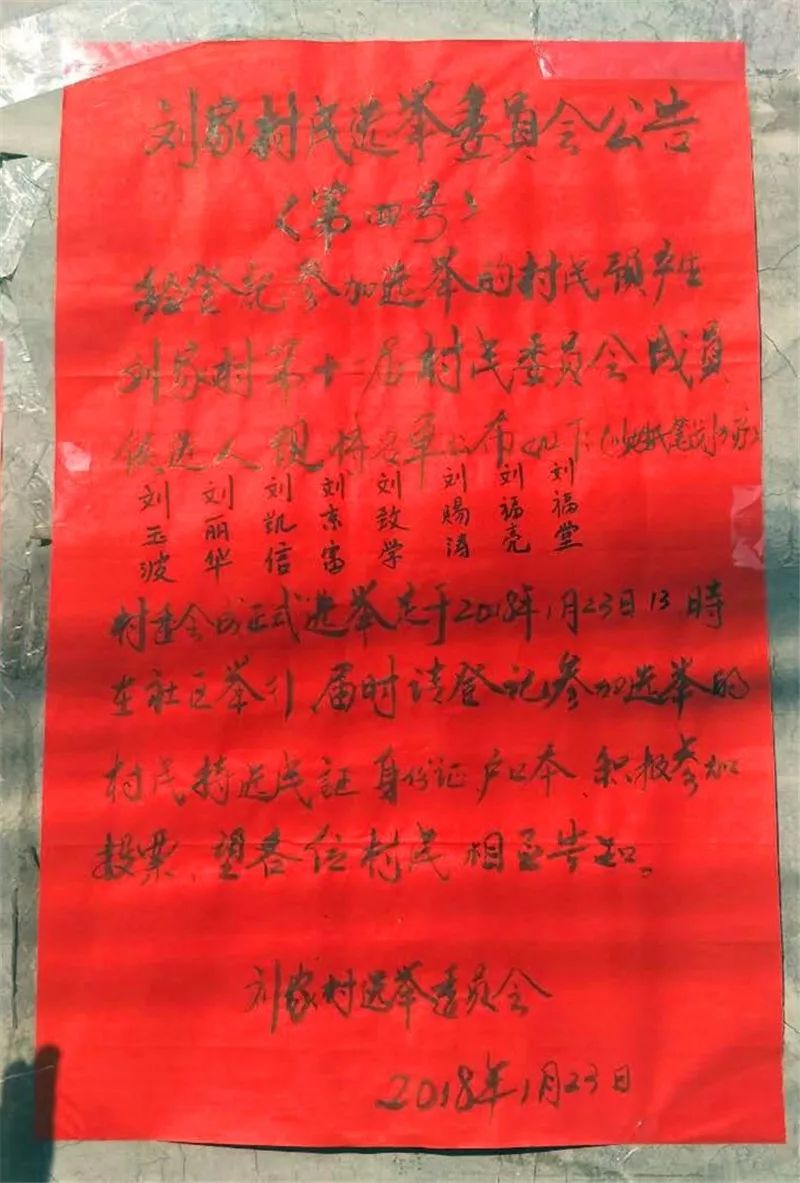 刘家村民选举委员会公告
(第四号)
经登记参加选举的村民预产生
刘家村第十一届村民委员会成员
候选人现将名单公布如下:(以姓氏笔划为序)
刘玉波 刘丽华 刘凯信 刘京富 刘致学 刘赐涛 刘福亮 刘福堂
村委会的正式选举定于2018年1月23日13時
在社区举行、届时请登记参加选举的
村民持选民証、身份证、户口本、积极参加
投票、望各位村民相互告知。
刘家村选举委员会
2018年1月23日